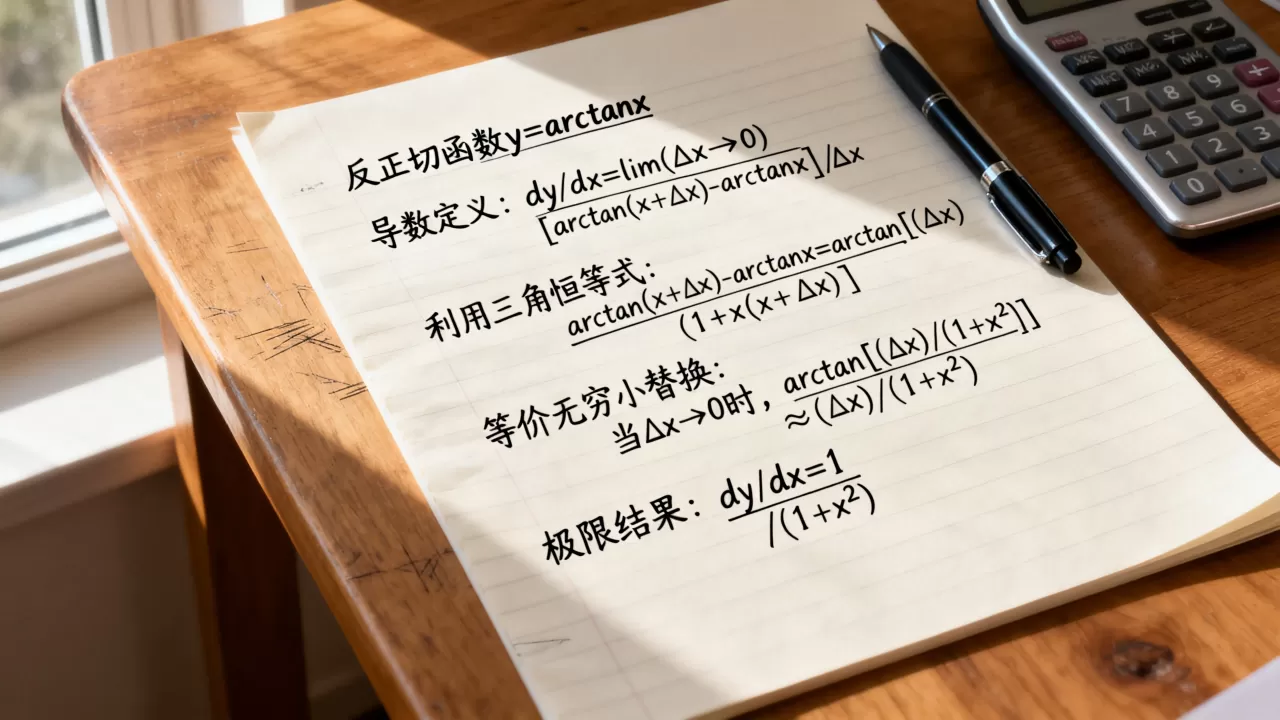 反正切函数y=arctanx
导数定义：dy/dx=lim(Δx→0)
[arctan(x+Δx)-arctanx]/Δx
利用三角恒等式：
arctan(x+Δx)-arctanx=arctan[(Δx)
(1+x(x+Δx)]
等价无穷小替换：
当Δx→0时，arctan[(Δx)/(1+x²)]]
≈(Δx)/(1+x²)
极限结果：dy/dx=1
/(1+x²)
7 8 9
4 5 6
1 2 3
0